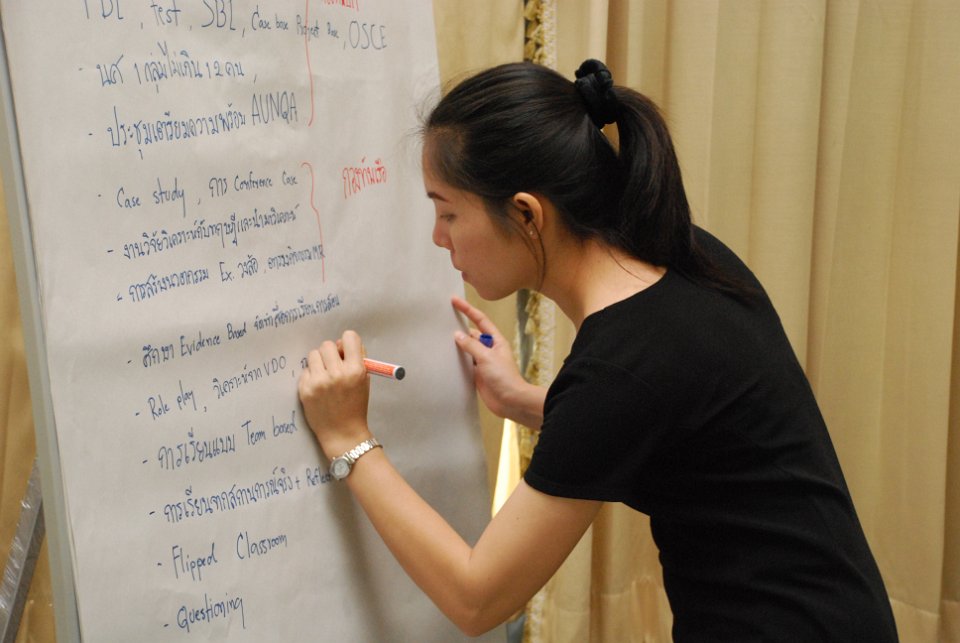 PBL, test, SBL, Case base Project Base, OSCE
- นศ 1 กลุ่มไม่เกิน 12 คน,
- ประชุมเตรียมความพร้อม AUNQA
- Case study, การ Conference Case
- งานวิจัยวิเคราะห์
- การสร้างนวตกรรม Ex.
- ศึกษา Evidence Based จัดทำสื่อการเรียนการสอน
- Role play, วิเคราะห์จาก VDO,
- การเรียนแบบ Team based
- การเรียนจากสถานการณ์จริง + Reflect
- Flipped Classroom
- Questioning